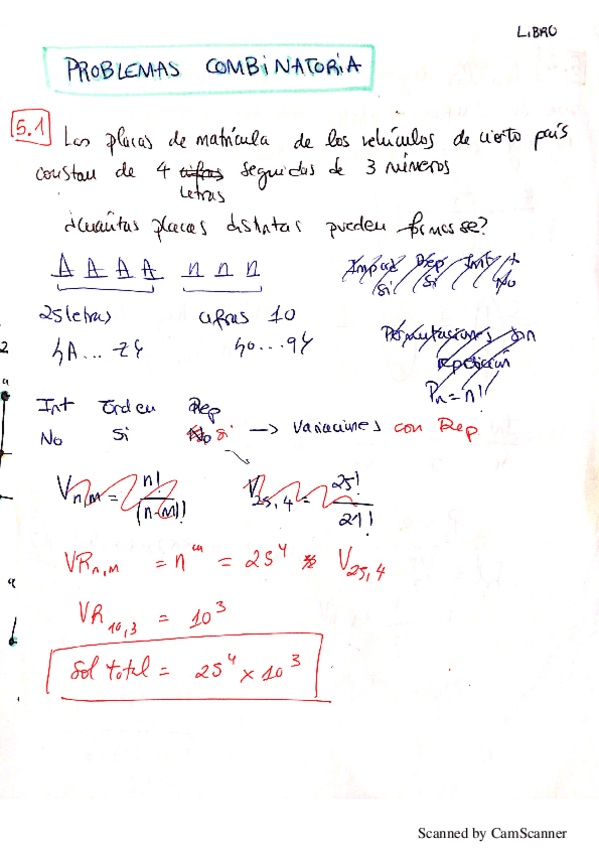 LIBRO
PROBLEMAS COMBINATORIA
5.1 Las placas de matrícula de los vehículos de cierto país
constan de 4 cifras seguidas de 3 números
letras
¿cuántas placas distintas pueden formarse?
A A A A n n n
Impor Rep Int
si si No
25 letras cifras 10
{A... Z} {0...9}
Permutaciones con
repetición
Pn = n!
Int Orden Rep
No Si No si → Variaciones con Rep
Vn,m = n! / (n-m)!
V25,4 = 25! / 21!
VRn,m = n^m = 25^4 V25,4
VR10,3 = 10^3
Sol total = 25^4 × 10^3
Scanned by CamScanner